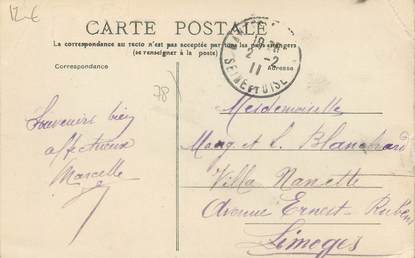 12 €
CARTE POSTALE
La correspondance au recto n'est pas acceptée par tous les pays étrangers
(se renseigner à la poste)
Correspondance
Adresse
2 -2
11
SEINE ET OISE
78
Souvenirs bien
affectueux
Marcelle
Mesdemoiselle
et L. Blanchard
Villa Nanette
Avenue Ernest-Ruben
Limoges